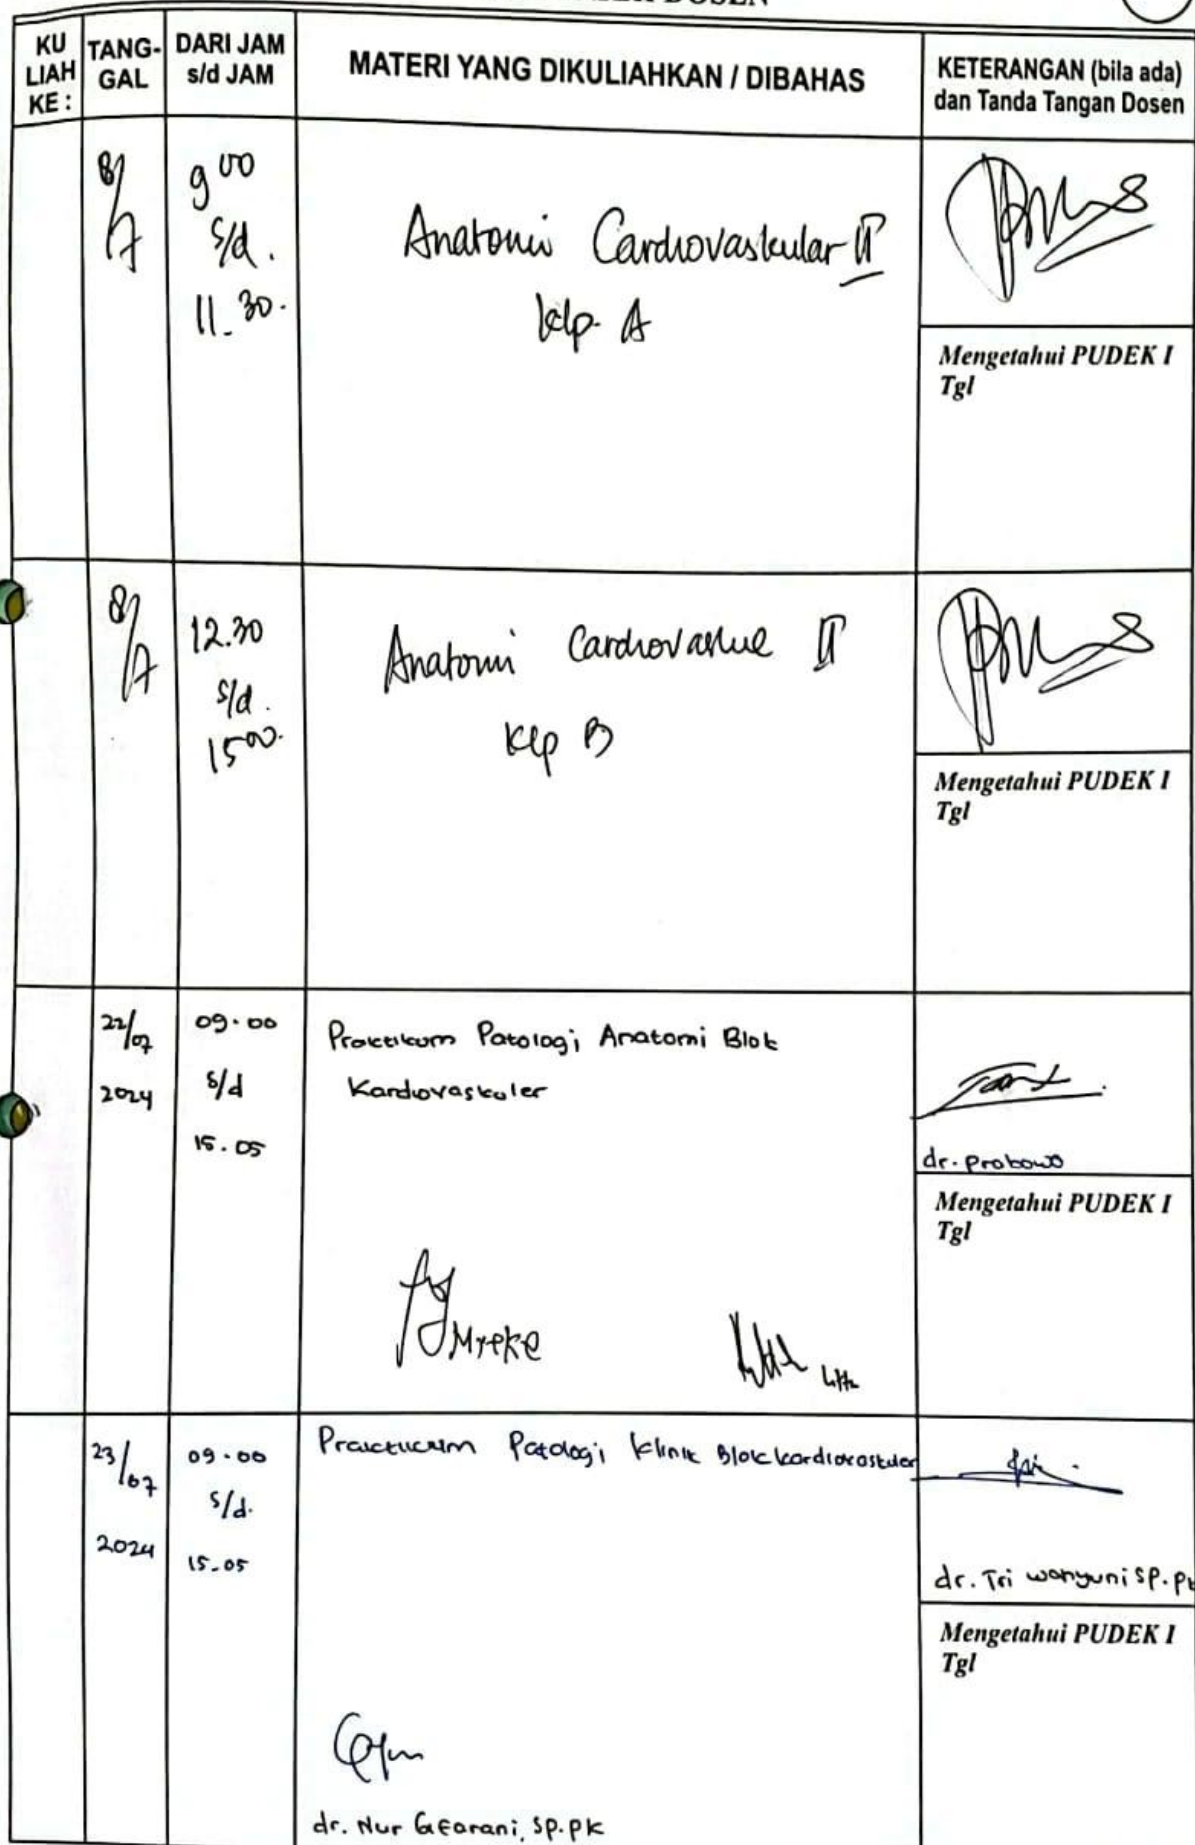 DOSEN
KU
LIAH
KE :
TANG-
GAL
DARI JAM
s/d JAM
MATERI YANG DIKULIAHKAN / DIBAHAS
KETERANGAN (bila ada)
dan Tanda Tangan Dosen
8/7
9 00
s/d.
11.30.
Anatomi Cardiovaskular II
klp. A
Mengetahui PUDEK I
Tgl
8/7
12.30
s/d.
15 00.
Anatomi II
Klp B
Mengetahui PUDEK I
Tgl
22/07
2024
09.00
s/d
15.05
Praktikum Patologi Anatomi Blok
Kardiovaskuler
dr. Prabowo
Mengetahui PUDEK I
Tgl
23/07
2024
09.00
s/d.
15.05
Patologi Klinik Blok kardiovaskuler
dr. Tri wahyuni SP.PK
Mengetahui PUDEK I
Tgl
dr. Nur SP.PK